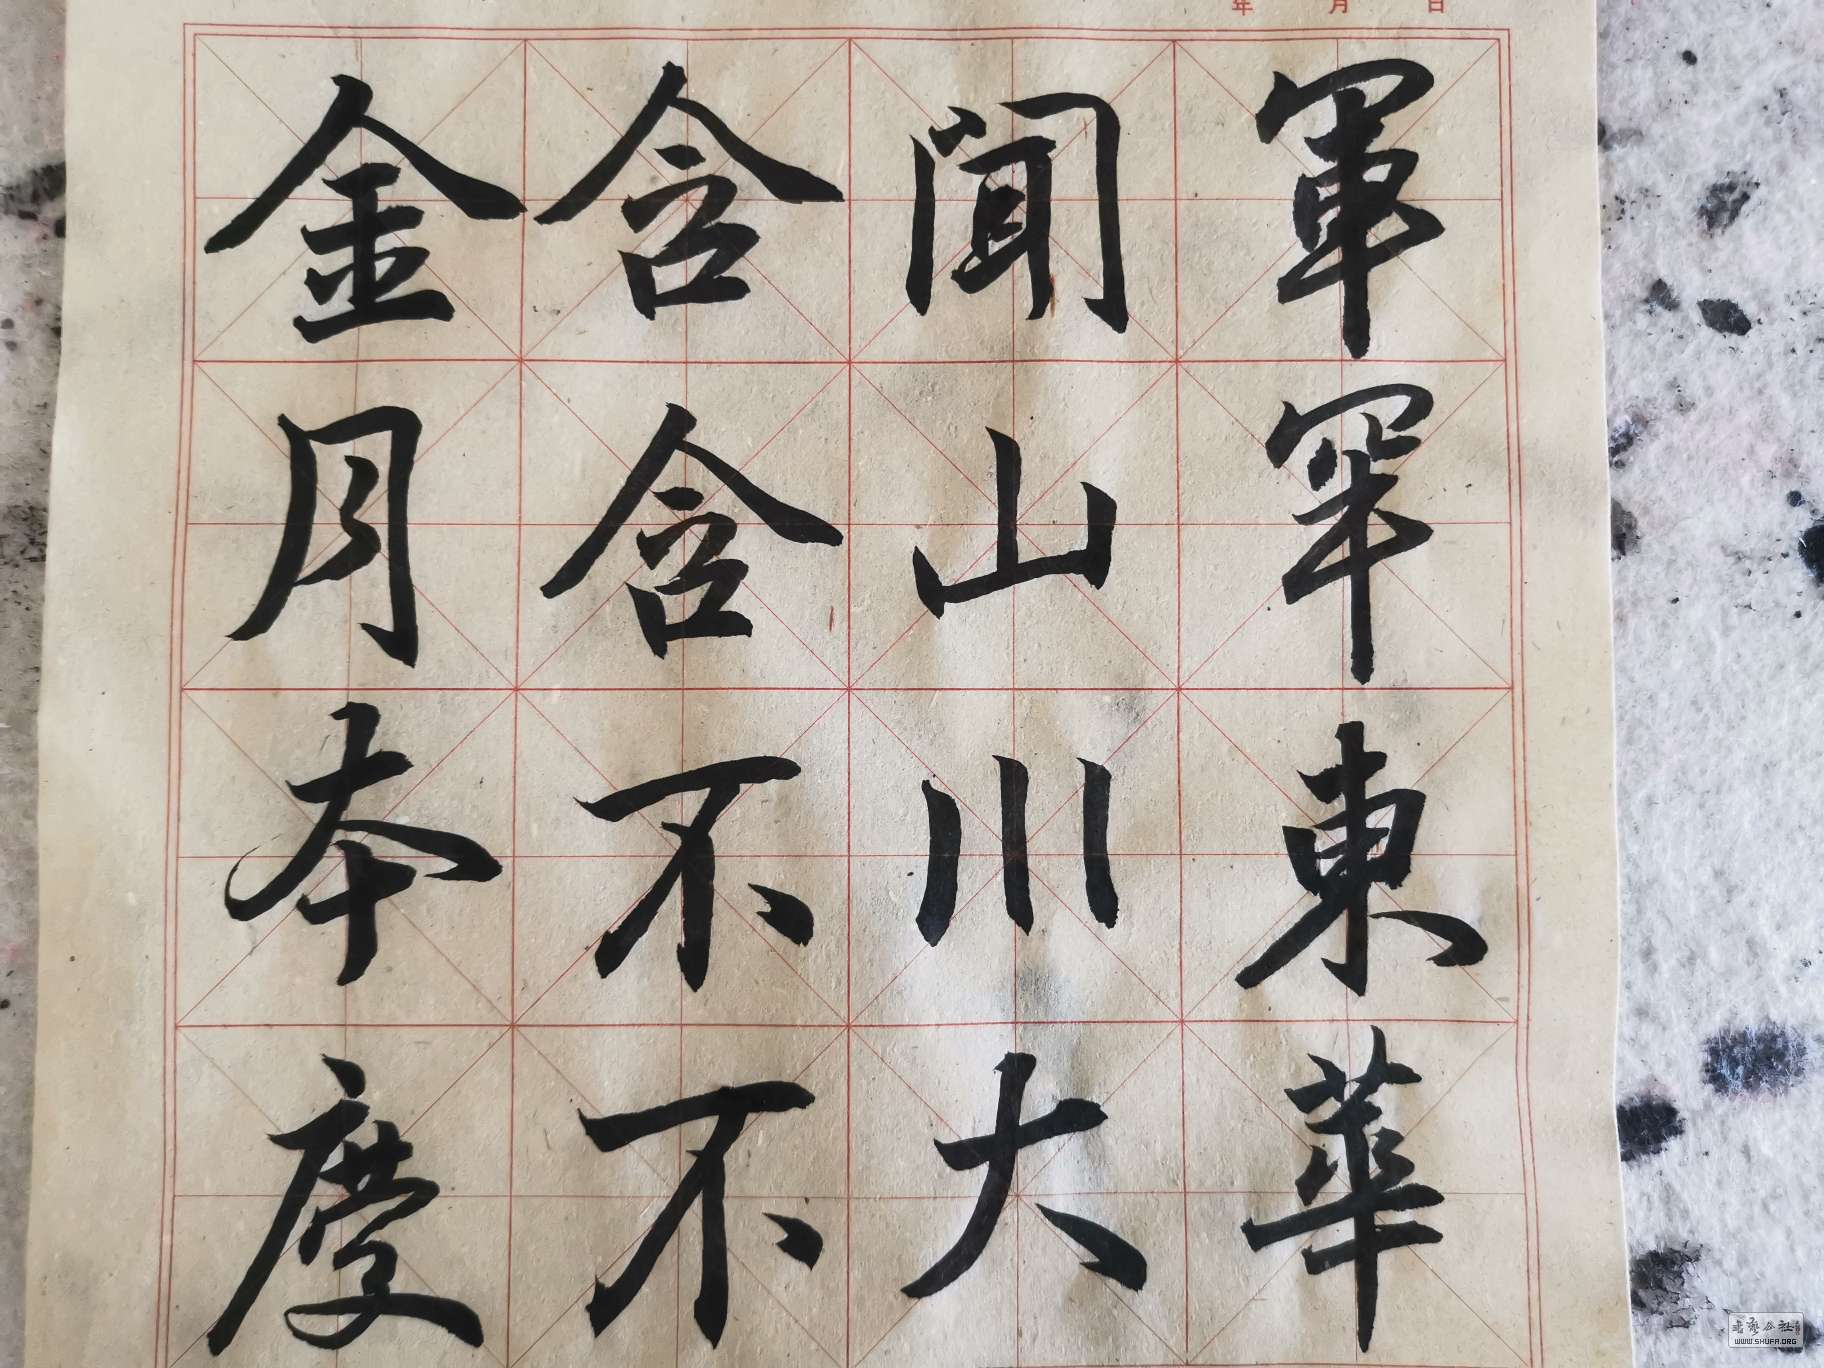 年 月 日
軍罕東華
聞山川大
含含不不
金月本慶
WWW.SHUFA.ORG